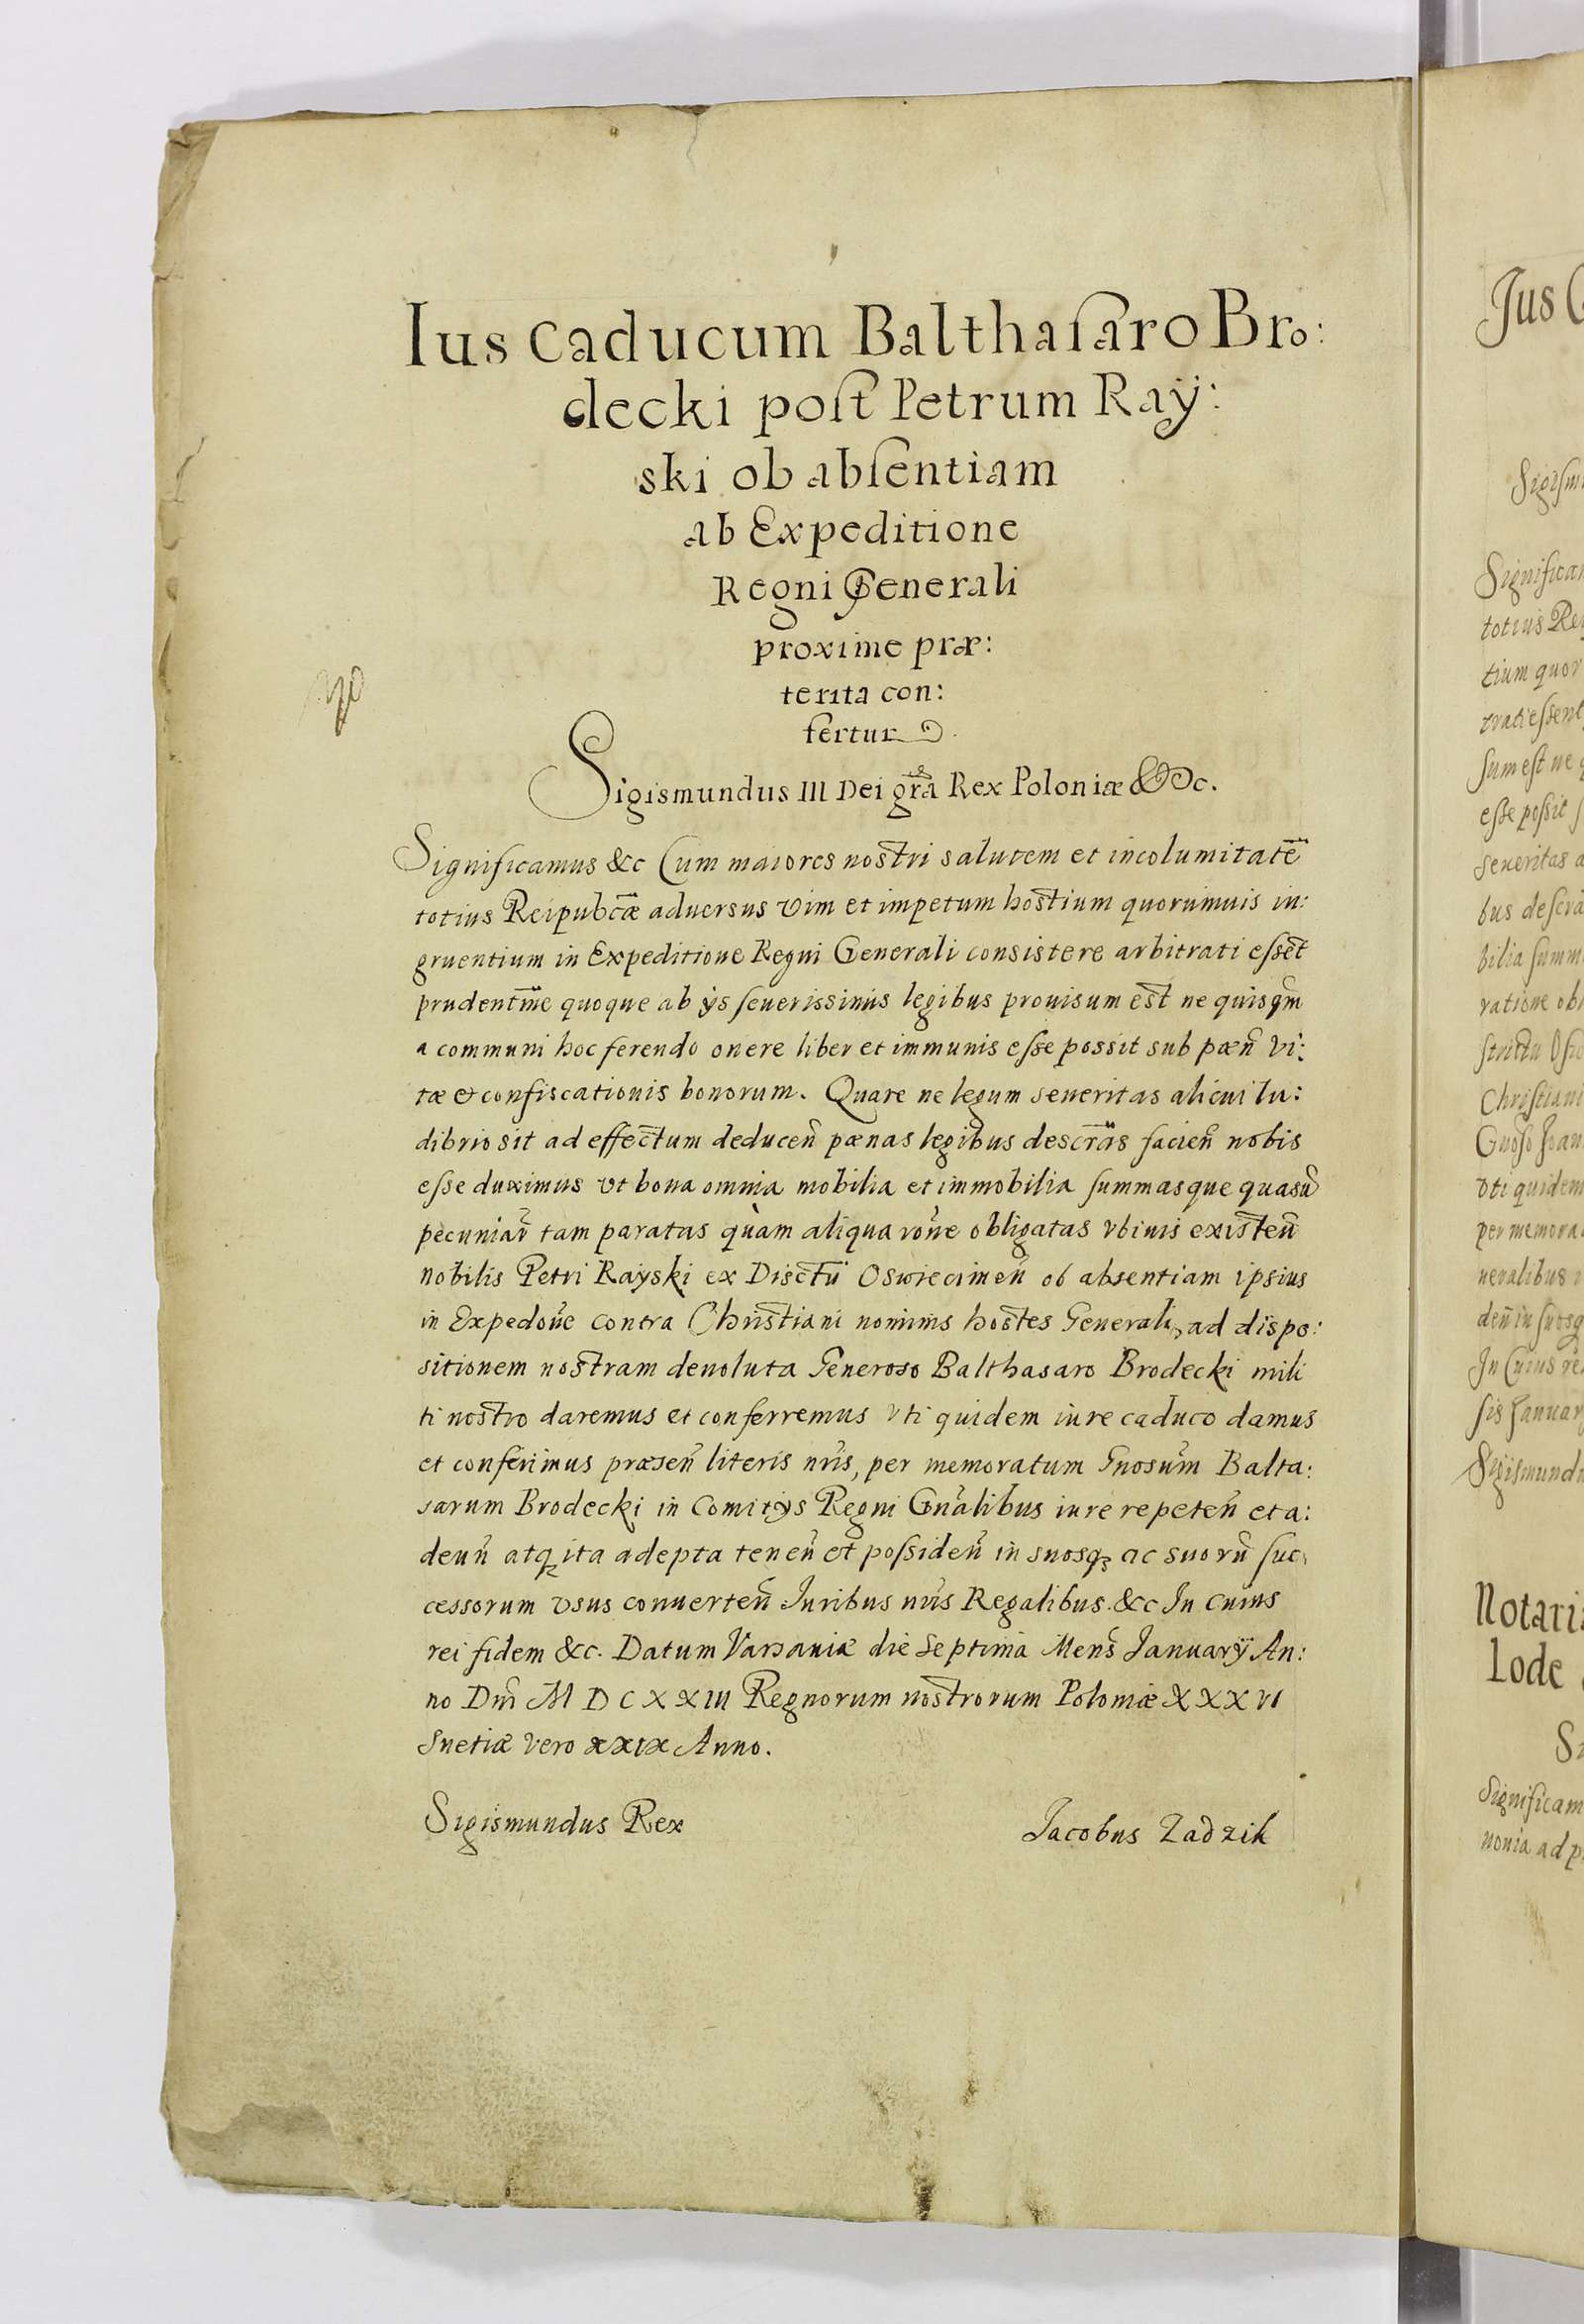 Ius Caducum Balthaſaro Bro:
decki poſt Petrum Raÿ:
ski ob abſentiam
ab Expeditione
Regni Generali
proxime præ:
terita con:
fertur
Sigismundus III Dei grã Rex Poloniæ &c.
Significamus &c Cum maiores nostri salutem et incolumitatẽ
totius Reipubcæ aduersus vim et impetum hostium quorumuis in:
gruentium in Expeditione Regni Generali consistere arbitrati eſset
prudentme quoque ab ÿs ſeuerissimis legibus prouisum est ne quisqm
a communi hoc ferendo onere liber et immunis eſse possit sub pæñ vi:
tæ et confiscationis bonorum. Quare ne legum seueritas alicui lu:
dibrio sit ad effectum deduceñ pænas legibus descrãs facieñ nobis
esse duximus vt bona omnia mobilia et immobilia ſummasque quasũ
pecuniar̃ tam paratas quàm aliqua roñe obligatas vbiuis existeñ
nobilis Petri Rayski ex Disctũ Oswiecimeñ ob absentiam ipsius
in Expedoñe contra Christiani nominis hostes Generali, ad dispo:
sitionem nostram deuoluta Generoso Balthasaro Brodecki mili
ti nostro daremus et conferremus vti quidem iure caduco damus
et conferimus præseñ literis nris, per memoratum Gnosum Balta:
sarum Brodecki in Comitÿs Regni Gnalibus iure repeteñ et a:
deuñ atqꝫ ita adepta teneñ et poſsideñ in suosqꝫ ac suorũ ſuc:
cessorum vsus conuerteñ Iuribus nris Regalibus &c In cuius
rei fidem &c. Datum Varsauiæ die septima Mens Ianuarÿ An:
no Dni M D C X X III Regnorum nostrorum Poloniæ X X X VI
Suetiæ vero XXIX Anno.
Sigismundus Rex
Iacobus Zadzik
Jus
Sigiſm
Significa
totius Re
tium quor
trati eſsent
ſum est ne
eſse poſsit
ſeueritas a
bus deſcra
bilia ſumm
ratione ob
Christiani
Gnoſo Joan
vti quidem
per memora
neralibus
deñ in ſuosq
In Cuius re
ſis Januar
Sigismund
Notari
Lode
Significam
nonia ad p